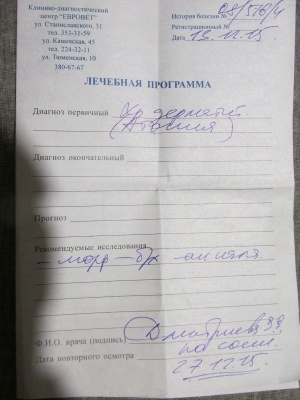 Клинико-диагностический
центр "ЕВРОВЕТ"
ул. Станиславского, 31
тел. 353-31-59
ул. Каменская, 45
тел. 224-32-11
ул. Тюменская, 10
380-67-67
История болезни №
Регистрационный №
Дата 13.12.15
ЛЕЧЕБНАЯ ПРОГРАММА
Диагноз первичный Хр дерматит
(Атопия)
Диагноз окончательный
Прогноз
Рекомендуемые исследования
- морф - б/х анализ
Ф.И.О. врача (подпись) Дмитриева
по сост.
Дата повторного осмотра 27.12.15